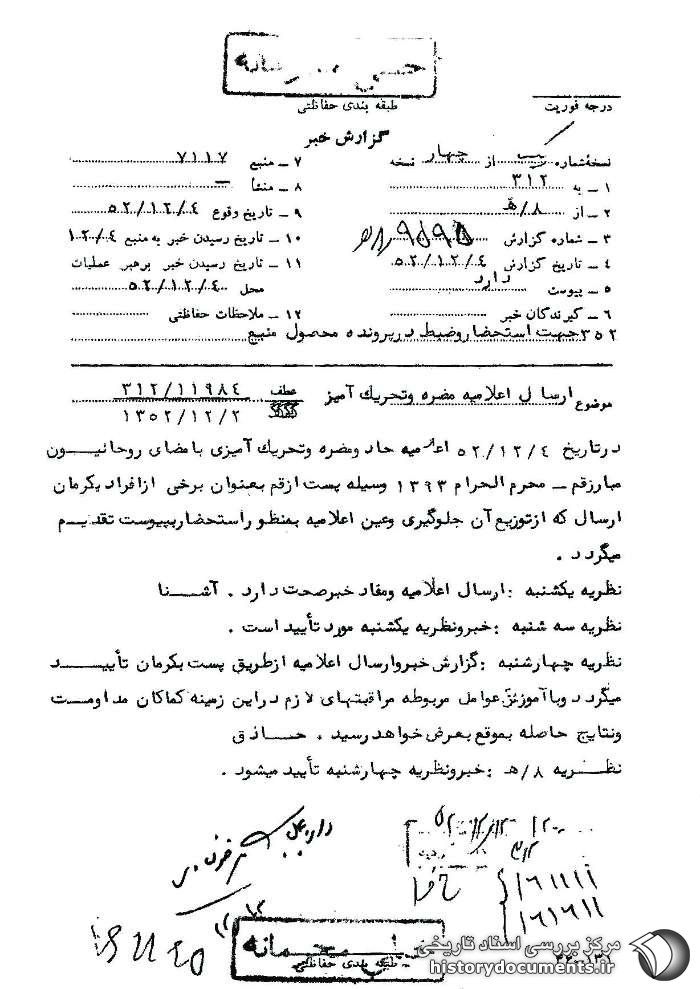 خیلی محرمانه
طبقه بندی حفاظتی
درجه فوریت
گزارش خبر
نسخهٔ شماره از چهار نسخه
۱ ـ به ۳۱۲
۲ ـ از ۸/هـ
۳ ـ شماره گزارش
۴ ـ تاریخ گزارش ۵۲/۱۲/۴
۵ ـ پیوست دارد
۶ ـ گیرندگان خبر
۷ ـ منبع ۷۱۱۷
۸ ـ منشأ ـ
۹ ـ تاریخ وقوع ۵۲/۱۲/۴
۱۰ ـ تاریخ رسیدن خبر به منبع ۱۲/۴
۱۱ ـ تاریخ رسیدن خبر برهبر عملیات
محل ۵۲/۱۲/۴
۱۲ ـ ملاحظات حفاظتی
۳۵۲ جهت استحضار وضبط در پرونده محصول منبع
موضوع ارسال اعلامیه مضره وتحریك آمیز
عطف ۳۱۲/۱۱۹۸۴
۱۳۵۲/۱۲/۲
درتاریخ ۵۲/۱۲/۴ اعلامیه حاد ومضره وتحریك آمیزی بامضای روحانیون
مبارزقم ـ محرم الحرام ۱۳۹۳ وسیله پست ازقم بعنوان برخی ازافراد بکرمان
ارسال که ازتوزیع آن جلوگیری وعین اعلامیه بمنظور استحضار بپیوست تقدیم
میگردد .
نظریه یکشنبه : ارسال اعلامیه ومفاد خبرصحت دارد . آشنا
نظریه سه شنبه : خبرونظریه یکشنبه مورد تأیید است .
نظریه چهارشنبه : گزارش خبروارسال اعلامیه ازطریق پست بکرمان تأیید
میگردد وباآموزش عوامل مربوطه مراقبتهای لازم دراین زمینه کماکان مداومت
ونتایج حاصله بموقع بعرض خواهد رسید . حاذق
نظریه ۸/هـ : خبرونظریه چهارشنبه تأیید میشود .
۱۶۱۱۱۱
۱۶۱۶۱۱
خیلی محرمانه
طبقه بندی حفاظتی
مرکز بررسی اسناد تاریخی
historydocuments.ir